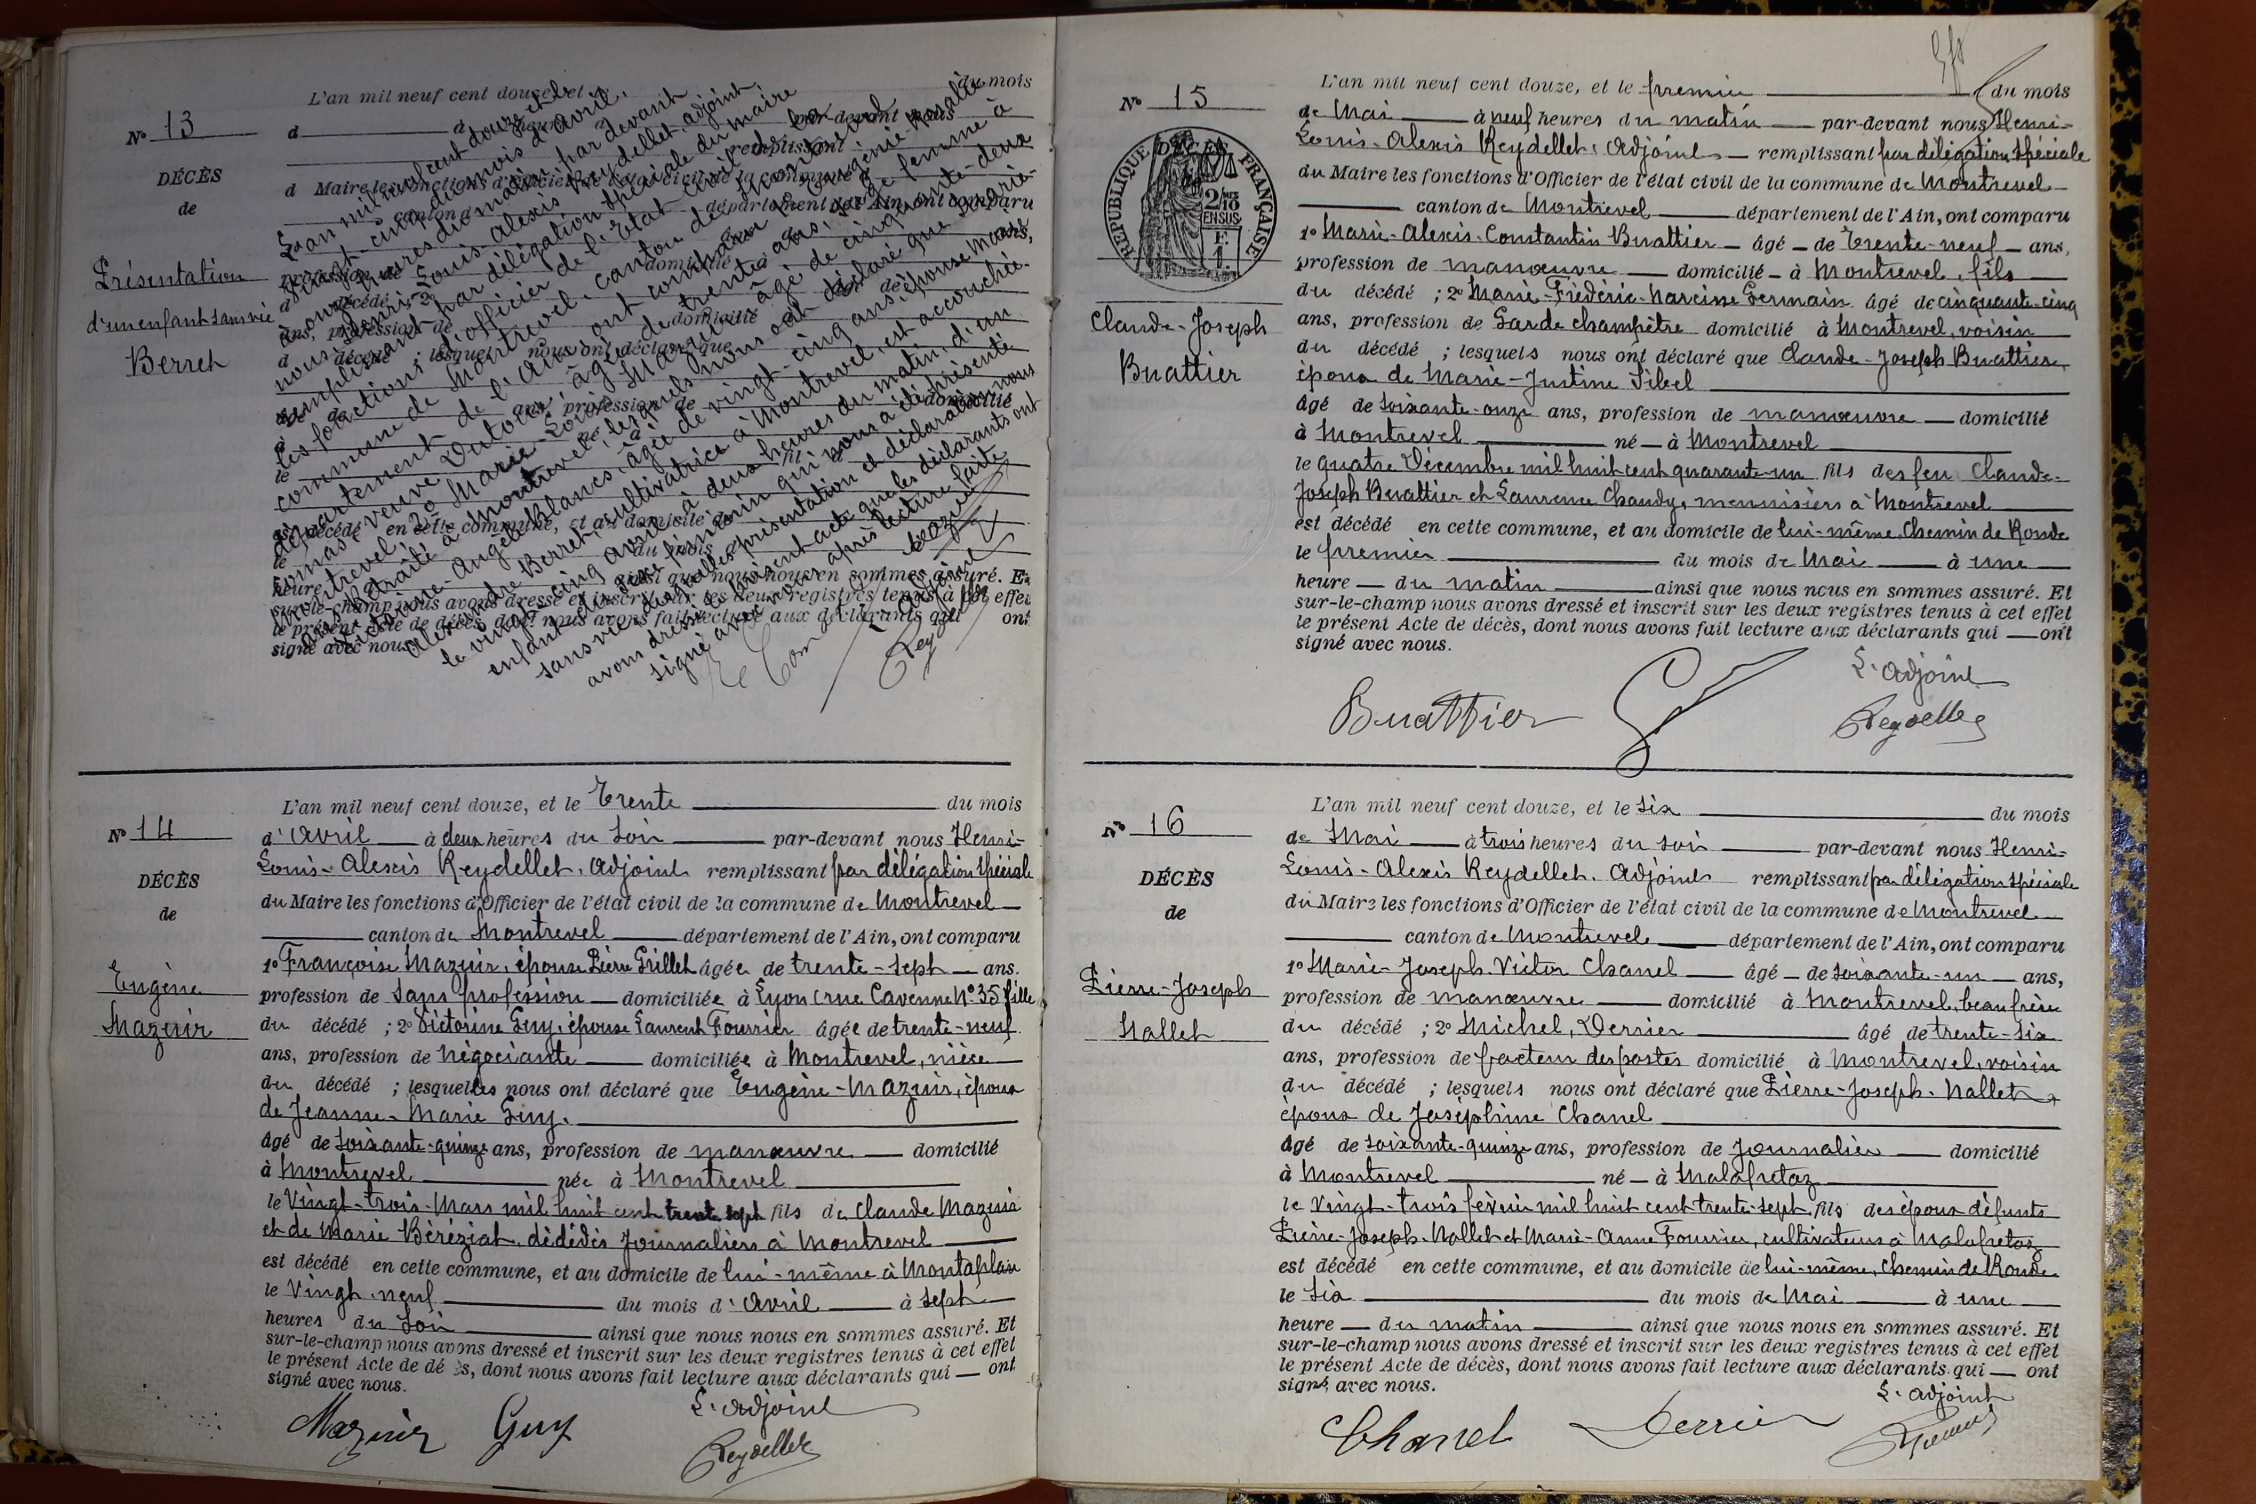 N° 13
DÉCÈS
de
Présentation
d'un enfant sans vie
Berret
L'an mil neuf cent douze et le
vingt-cinq du mois d'avril,
à onze heures du matin, par devant
nous Henri-Louis-Alexis Reydellet, adjoint
remplissant par délégation spéciale du Maire
les fonctions d'officier de l'Etat-civil de la
commune de Montrevel, canton de Montrevel
département de l'Ain, ont comparu Eugénie Rosalie
Comas veuve Dutour, âgée de trente ans, sage femme à
Montrevel; 2° Marie-Louis Mazuir âgé de cinquante-deux
ans, retraité à Montrevel, lesquels nous ont déclaré que Marie-
Victorine-Angèle Blanc, âgée de vingt-cinq ans, épouse Marie,
Alexandre Berret, cultivatrice à Montrevel, est accouchée
le vingt-cinq avril à deux heures du matin, d'un
enfant du sexe féminin qui nous a été présenté
sans vie, desquelles présentation et déclaration nous
avons dressé le présent acte que les déclarants ont
signé avec nous après lecture faite
Mazuir
L'adjoint
Reydellet
L'an mil neuf cent douze, et le du mois
par-devant nous
remplissant
d Maire les fonctions d'Officier de l'état civil de la commune d
canton d département de l'Ain, ont comparu
profession de domicilié à
d décédé ; 2°
ans, profession de domicilié
d décédé ; lesquels nous ont déclaré que
âgé de ans, profession de domicilié
à né à
le fil d
est décédé en cette commune, et au domicile de
le du mois d
heure ainsi que nous nous en sommes assuré. Et
sur-le-champ nous avons dressé et inscrit sur les deux registres tenus à cet effet
le présent Acte de décès, dont nous avons fait lecture aux déclarants qui ont
signé avec nous.
N° 14
DÉCÈS
de
Eugène
Mazuir
L'an mil neuf cent douze, et le Trente du mois
d'avril à deux heures du soir par-devant nous Henri-
Louis-Alexis Reydellet, adjoint remplissant par délégation spéciale
du Maire les fonctions d'Officier de l'état civil de la commune de Montrevel
canton de Montrevel département de l'Ain, ont comparu
1° Françoise Mazuir, épouse Pierre Grillet âgée de trente-sept ans.
profession de sans profession domiciliée à Lyon (rue Cavenne N° 35 fille
du décédé ; 2° Victorine Guy, épouse Laurent Fourrier âgée de trente-neuf
ans, profession de négociante domiciliée à Montrevel, nièce
du décédé ; lesquelles nous ont déclaré que Eugène-Mazuir, époux
de Jeanne-Marie Guy.
âgé de soixante-quinze ans, profession de manœuvre domicilié
à Montrevel née à Montrevel
le Vingt-trois Mars mil huit cent trente sept fils de Claude Mazuir
et de Marie Béréziat, dédédés journaliers à Montrevel
est décédé en cette commune, et au domicile de lui-même à Montaplan
le Vingt-neuf du mois d'avril à sept
heures du soir ainsi que nous nous en sommes assuré. Et
sur-le-champ nous avons dressé et inscrit sur les deux registres tenus à cet effet
le présent Acte de décès, dont nous avons fait lecture aux déclarants qui ont
signé avec nous.
L'adjoint
Mazuir Guy Reydellet
N° 15
RÉPUBLIQUE FRANÇAISE
2/10 EN SUS
DÉCÈS
Claude-Joseph
Buattier
L'an mil neuf cent douze, et le premier du mois
de Mai à neuf heures du matin par-devant nous Henri-
Louis-Alexis Reydellet, adjoint remplissant par délégation spéciale
du Maire les fonctions d'Officier de l'état civil de la commune de Montrevel
canton de Montrevel département de l'Ain, ont comparu
1° Marie-Alexis-Constantin Buattier âgé de trente-neuf ans,
profession de manœuvre domicilié à Montrevel, fils
du décédé ; 2° Marie-Frédéric-Narcisse Germain âgé de cinquante-cinq
ans, profession de Garde champêtre domicilié à Montrevel, voisin
du décédé ; lesquels nous ont déclaré que Claude-Joseph Buattier,
époux de Marie-Justine Sibel
âgé de soixante-onze ans, profession de manœuvre domicilié
à Montrevel né à Montrevel
le quatre Décembre mil huit cent quarante-un fils des feu Claude-
Joseph Buattier et Laurence Chaudy, menuisiers à Montrevel
est décédé en cette commune, et au domicile de lui-même, Chemin de Ronde
le premier du mois de Mai à une
heure du matin ainsi que nous nous en sommes assuré. Et
sur-le-champ nous avons dressé et inscrit sur les deux registres tenus à cet effet
le présent Acte de décès, dont nous avons fait lecture aux déclarants qui ont
signé avec nous.
L'adjoint
Buattier Reydellet
N° 16
DÉCÈS
de
Pierre-Joseph
Nallet
L'an mil neuf cent douze, et le six du mois
de Mai à trois heures du soir par-devant nous Henri-
Louis-Alexis Reydellet, adjoint remplissant par délégation spéciale
du Maire les fonctions d'Officier de l'état civil de la commune de Montrevel
canton de Montrevel département de l'Ain, ont comparu
1° Marie-Joseph-Victor Chanel âgé de soixante-un ans,
profession de manœuvre domicilié à Montrevel, beau frère
du décédé ; 2° Michel, Derrier âgé de trente-six
ans, profession de facteur des postes domicilié à Montrevel, voisin
du décédé ; lesquels nous ont déclaré que Pierre-Joseph-Nallet
époux de Joséphine Chanel
âgé de soixante-quinze ans, profession de journalier domicilié
à Montrevel né à Malafretaz
le Vingt-trois février mil huit cent trente-sept fils des époux défunts
Pierre-Joseph-Nallet et Marie-Anne Fourrier, cultivateurs à Malafretaz
est décédé en cette commune, et au domicile de lui-même, Chemin de Ronde
le six du mois de Mai à une
heure du matin ainsi que nous nous en sommes assuré. Et
sur-le-champ nous avons dressé et inscrit sur les deux registres tenus à cet effet
le présent Acte de décès, dont nous avons fait lecture aux déclarants qui ont
signé avec nous.
L'adjoint
Chanel Derrier